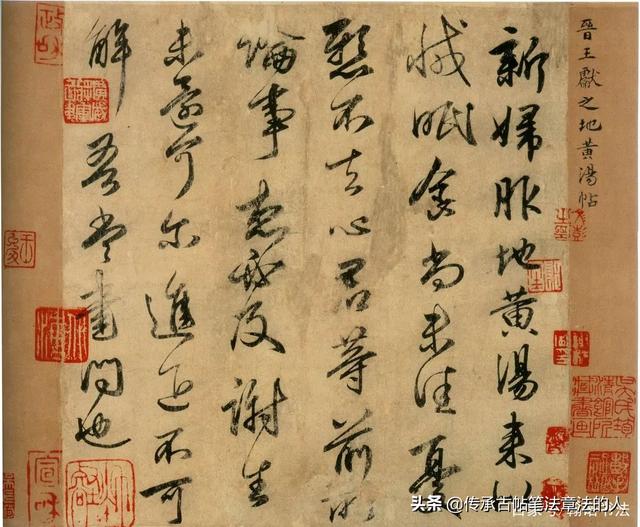 晉王獻之地黃湯帖
新婦服地黄湯来似
減眠食尚未佳憂
懸不去心君等前所
論事想必及謝生
未還可尔進退不可
解吾當書問也
政和
宣和
头条 @传承古帖笔法章法的人